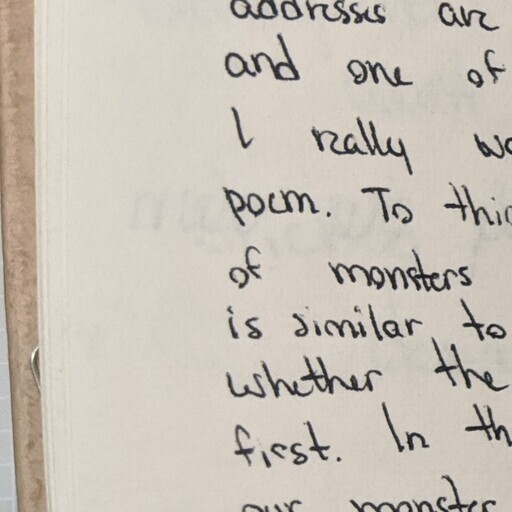 addresses are
and one of
I really wo
poem. To thi
of monsters
is similar to
whether the
first. In th
our monster